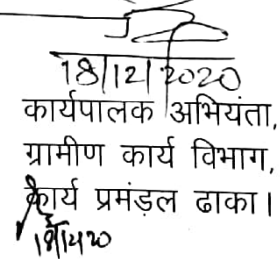 18/12/2020
कार्यपालक अभियंता,
ग्रामीण कार्य विभाग,
कार्य प्रमंडल ढाका।
18/12/20